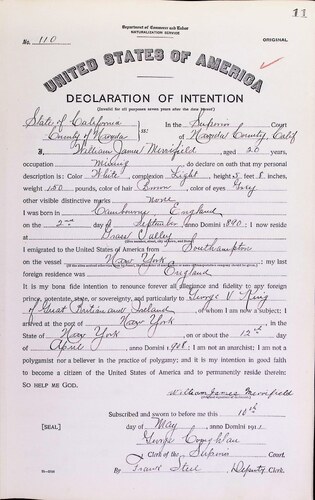 11
Department of Commerce and Labor
NATURALIZATION SERVICE
No. 110
ORIGINAL
UNITED STATES OF AMERICA
DECLARATION OF INTENTION
(Invalid for all purposes seven years after the date hereof)
State of California
County of Nevada
ss:
In the Superior Court
of Nevada County, Calif
I, William James Merrifield, aged 20 years,
occupation Mining, do declare on oath that my personal
description is: Color White, complexion Light, height 5 feet 8 inches,
weight 150 pounds, color of hair Brown, color of eyes Grey
other visible distinctive marks none
I was born in Cambourne England
on the 2nd day of September, anno Domini 1890; I now reside
at Grass Valley
I emigrated to the United States of America from Southampton
on the vessel New York; my last
foreign residence was England
It is my bona fide intention to renounce forever all allegiance and fidelity to any foreign
prince, potentate, state, or sovereignty, and particularly to George V King
of Great Britain and Ireland, of whom I am now a subject; I
arrived at the port of New York, in the
State of New York on or about the 12th day
of April, anno Domini 1908; I am not an anarchist; I am not a
polygamist nor a believer in the practice of polygamy; and it is my intention in good faith
to become a citizen of the United States of America and to permanently reside therein:
SO HELP ME GOD.
William James Merrifield
Subscribed and sworn to before me this 10th
[SEAL] day of May, anno Domini 1911
George Coughlan
Clerk of the Superior Court.
By Frank Steel, Deputy Clerk.